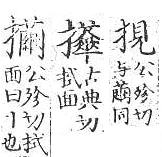 挸
公殄切
与同
古典切
拭面
公殄切拭
面曰丨也